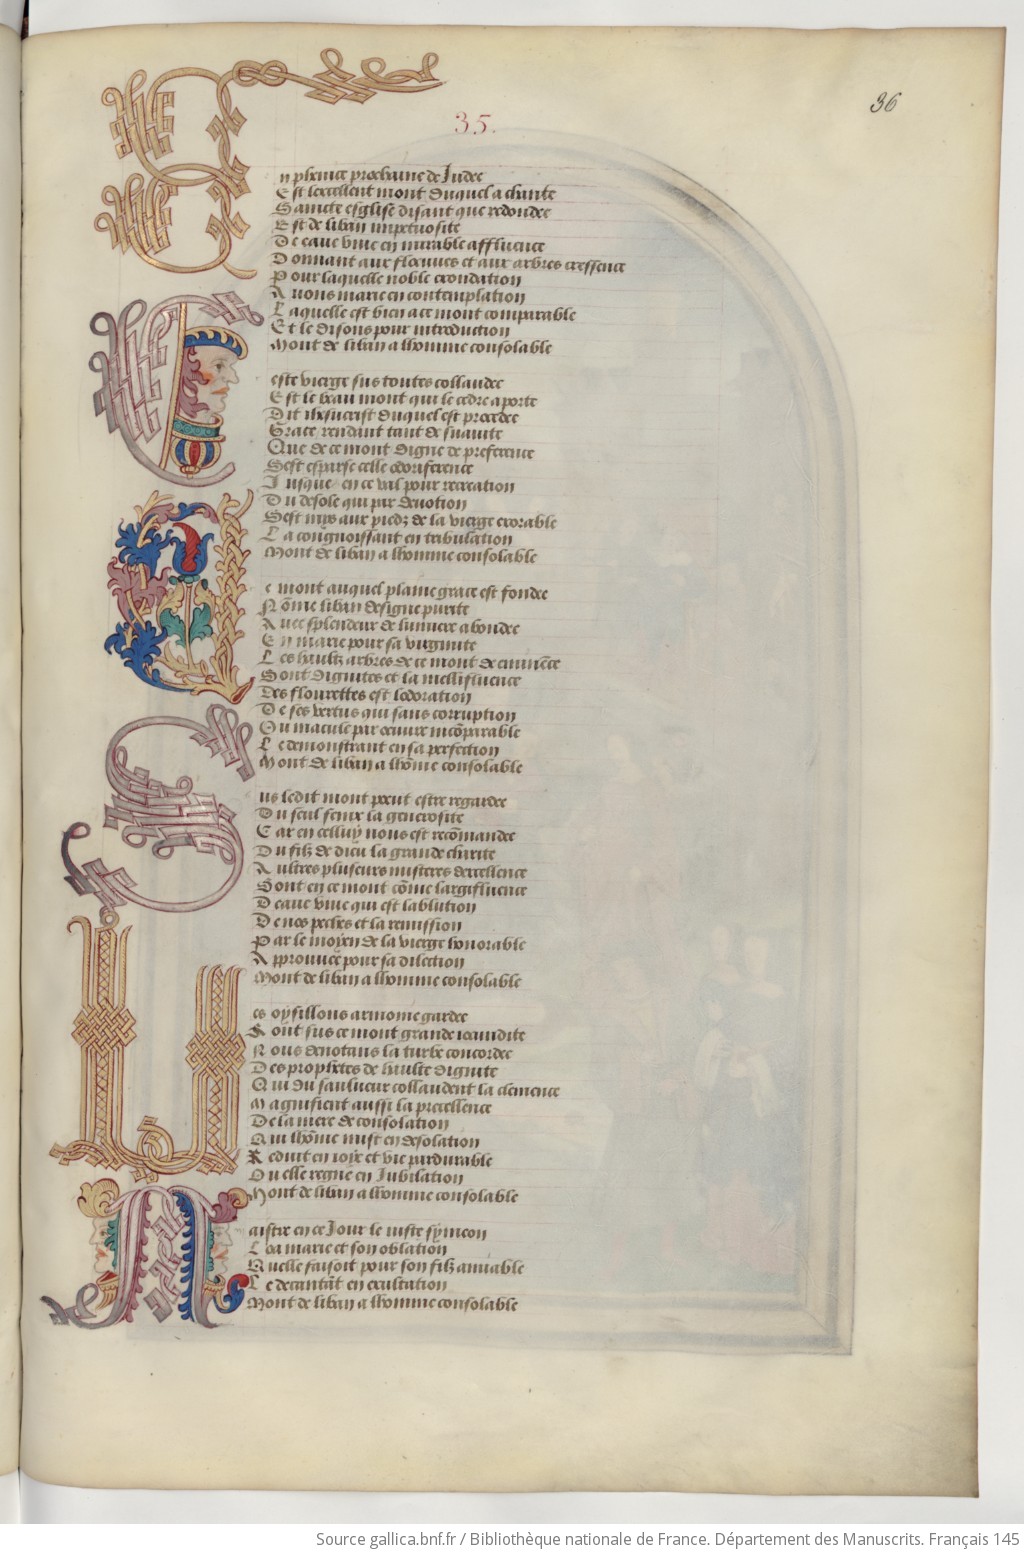 36
35.
En phenice prochaine de Judee
Est lexcellent mont duquel a chante
Saincte esglise disant que redondee
Est de liban impetuosite
De eaue vive en mirable affluence
Donnant aux fleuves et aux arbres cressence
Pour laquelle noble exondation
Avons marie en contemplation
Laquelle est bien a ce mont comparable
Et le disons pour introduction
Mont de liban a lhomme consolable
Ceste vierge sus toutes collaudee
Est le beau mont qui le cedre aporte
Dit ihesucrist duquel est procedee
Grace rendant tant de suavite
Que de ce mont digne de preference
Sest esparse celle odoriference
Jusques en ce val pour recreation
Du desole qui par devotion
Sest mys aux piedz de la vierge exorable
La congnoissant en tribulation
Mont de liban a lhomme consolable
Ce mont auquel plaine grace est fondee
Nõme liban designe purite
Avec splendeur de lumiere abondee
En marie pour sa virginite
Les haultz arbres de ce mont de eminẽce
Sont dignites et la mellifluence
Des flourettes est lodoration
De ses vertus qui sans corruption
Ou macule par oeuvre incõparable
Le demonstrant en sa perfection
Mont de liban a lhõme consolable
Sus ledit mont peut estre regardee
Du seul fenix la generosite
Car en celluy nous est recõmandee
Du filz de dieu la grande charite
Aultres pluseurs misteres dexcellence
Sont en ce mont cõme largifluence
Deaue vive qui est lablution
De nos peches et la remission
Par le moyen de la vierge honorable
Approuvee pour sa dilection
Mont de liban a lhomme consolable
Les oysillons armonie gardee
Font sus ce mont grande iocundite
Nous denotans la turbe concordee
Des prophetes de haulte dignite
Qui du saulueur collaudent la clemence
Magnifient aussi la precellence
De la mere de consolation
Qui lhõme mist en desolation
Reduit en ioye et vie pardurable
Ou elle regne en Jubilation
Mont de liban a lhomme consolable
Maistre en ce Jour le iuste symeon
Loa marie et son oblation
Quelle faisoit pour son filz amiable
Le decantãt en exultation
Mont de liban a lhomme consolable
Source gallica.bnf.fr / Bibliothèque nationale de France. Département des Manuscrits. Français 145